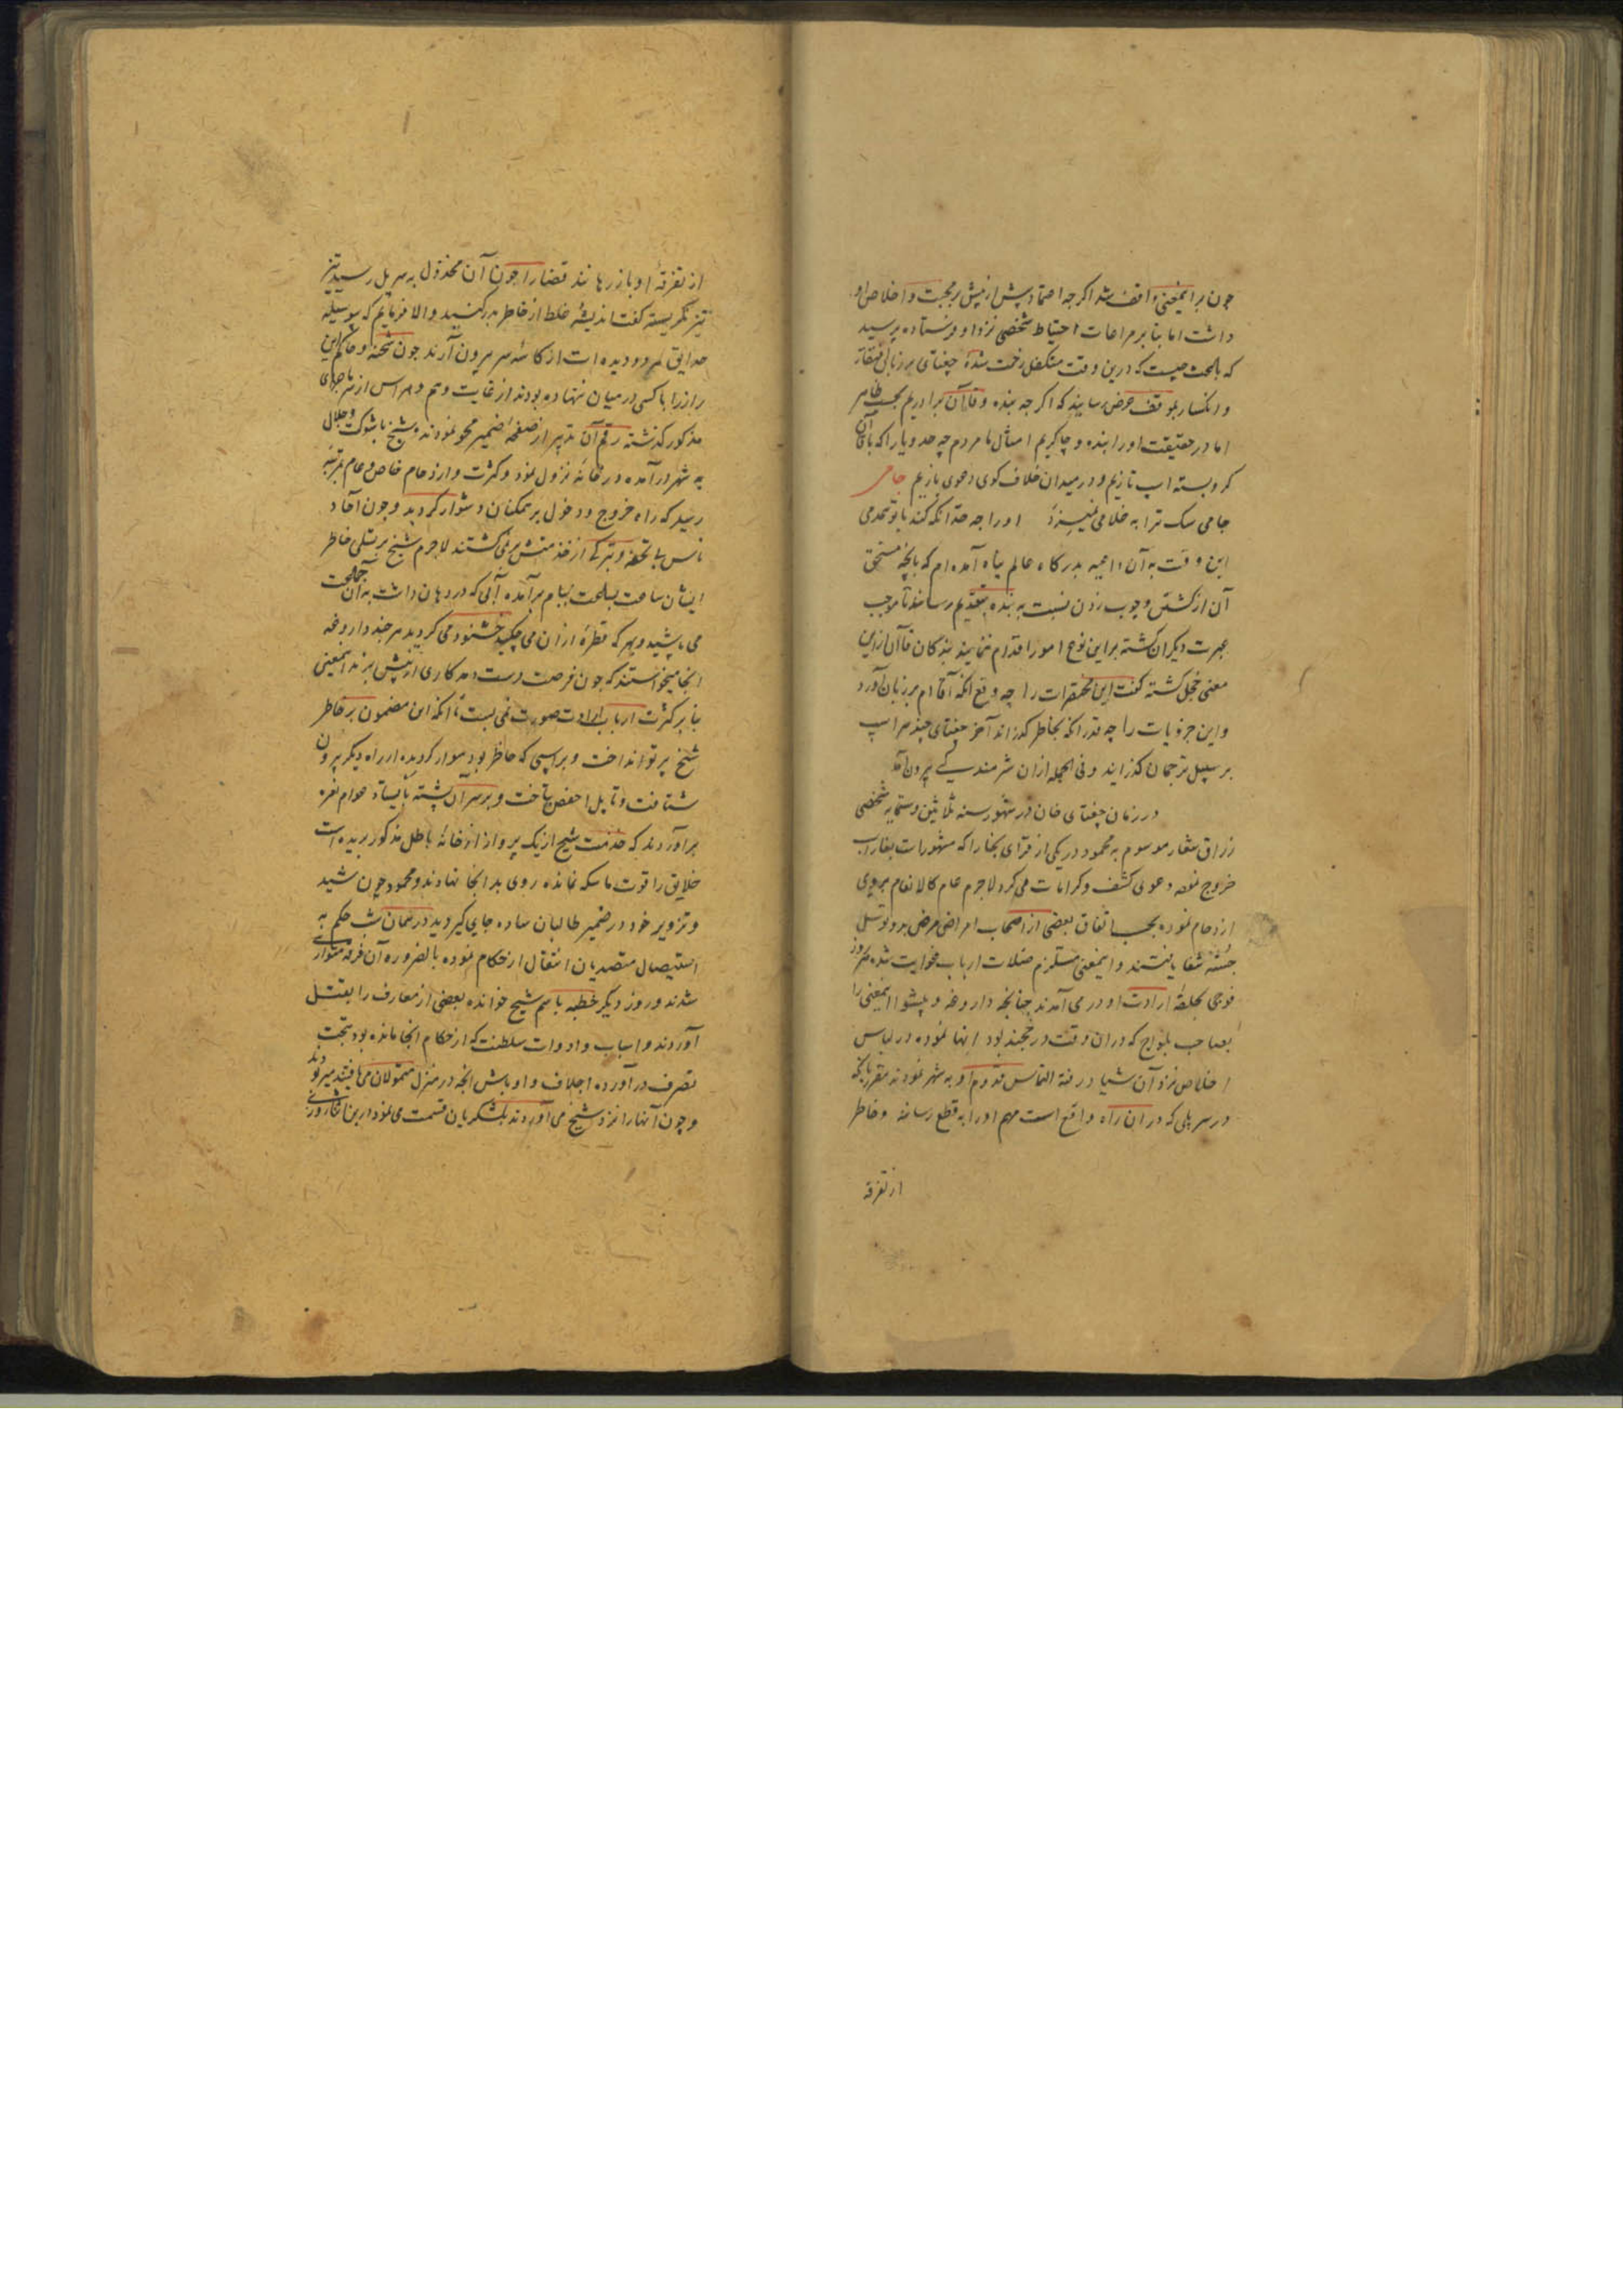 چون برایمعنی واقف شد اکرچه اعتماد پیش از پیش بر محبت و اخلاص او
داشت اما بنا بر مراعات احتیاط شخصی نزد او فرستاده پرسید
که باعث چیست که درین وقت متکفل زحمت شدهٔ چغتای بر زبان افتقار
و انکسار بموقف عرض رسانید که اکرچه بنده و قاآن برادریم بحسب ظاهر
اما در حقیقت او را بنده و چاکریم امثال ما مردم چه حد و یارا که با قاآن
کرو بسته اسپ تازیم و در میدان خلاف کوی دعوی بازیم جامی
جامی سک ترا به غلامی نمیسزد او را چه حد آنکه کند با تو همدمی
این وقت به آن داعیه بدرکاه عالم پناه آمده‌ام که بانچه مستحق
آن از کشتن و چوب زدن نسبت به بنده بتقدیم رسانند تا موجب
عبرت دیکران کشته بر این نوع امور اقدام ننمایند بندکان قاآن ازین
معنی خجل کشته کفت این محقرات را چه وقع انکه آقام بر زبان آورد
و این جزویات را چه قدر انکه بخاطر کذراند آخر چغتای چند سر اسپ
بر سبیل ترجمان کذرانید و فی الجمله ازان شرمندکی بیرون آمد
در زمان چغتای خان در شهور سنه ثلاثین و ستمایه شخصی
زراق شعار موسوم به محمود در یکی از قرای بخارا که مشهورات بفاراب
خروج نموده دعوی کشف و کرامات می‌کرد لاجرم عام کالانعام بروی
ازدحام نموده بحسب اتفاق بعضی از اصحاب امراض مرض بدو توسل
جسته شفا یافتند و ایمعنی مستلزم ضلالت ارباب غوایت شده هر روز
فوجی بحلقهٔ ارادت او در می‌آمدند چنانچه داروغه و پیشوا ایمعنی را
بصاحب یلواج که دران وقت در خجند بود انها نموده در لباس
اخلاص نزد آن شیاد رفته التماس قدوم او به شهر نمودند مقرر بانکه
در سر پلی که دران راه واقع است مهم او را به قطع رسانند و خاطر
از تفرقه
از تفرقهٔ او باز رهانند قضا را چون آن مخذول به سر پل رسید تیز
تیز نکریسته کفت اندیشهٔ غلط از خاطر بدر کنید و الا فرمایم که بوسیله
حدایق هر دو دیده‌ات از کاسهٔ سر بیرون آرند چون شحنه و حاکم این
راز را با کسی در میان ننهاده بودند از غایت وهم و هراس از سر ماجرای
مذکور کذشته رقم آن تدبیر از صفحهٔ ضمیر محو نمودند و شیخ با شوکت و جلال
به شهر درآمده در خانهٔ نزول نمود و کثرت و ازدحام خاص و عام بمرتبهٔ
رسید که راه خروج و دخول بر ممکنان دشوار کردید و چون آحاد
ناس بی تحفه و تبرکی از خدمتش بر نمی‌کشتند لاجرم شیخ بر تسلی خاطر
ایشان ساعت بساعت ببام برآمده آبی که در دهان داشت به آن جماعت
می‌پاشید و بهر که قطرهٔ ازان می‌چکید خشنود می‌کردید هر چند داروغه
انجا میخواستند که چون فرصت دست دهد کاری از پیش برند ایمعنی
بنا بر کثرت ارباب ارادت صورت نمی‌بست تا انکه این مضمون بر خاطر
شیخ پرتو انداخت و بر اسپی که حاضر بود سوار کردیده از راه دیکر بیرون
شتافت و تا تل ابا حفص بتاخت و بر سر آن پشته بایستاد عوام نعره
برآوردند که خدمت شیخ از یک پرواز از خانه باطل مذکور بریده است
خلایق را قوت ماسکه نمانده روی بدانجا نهادند و محمود چون شید
و تزویر خود در ضمیر طالبان ساده جای کیر دید در همان شب حکم به
استیصال متصدیان اشغال از حکام نموده بالضروره آن فرقه متواری
شدند و روز دیکر خطبه باسم شیخ خوانده بعضی از معارف را بقتل
آوردند و اسباب و ادوات سلطنت که از حکام انجا مانده بود بتحت
تصرف درآورده اجلاف و اوباش انچه در منزل متمولان می‌یافتند میربودند
و چون آنها را نزد شیخ می‌آوردند بلشکریان قسمت می‌نمود درین اثنا روزی